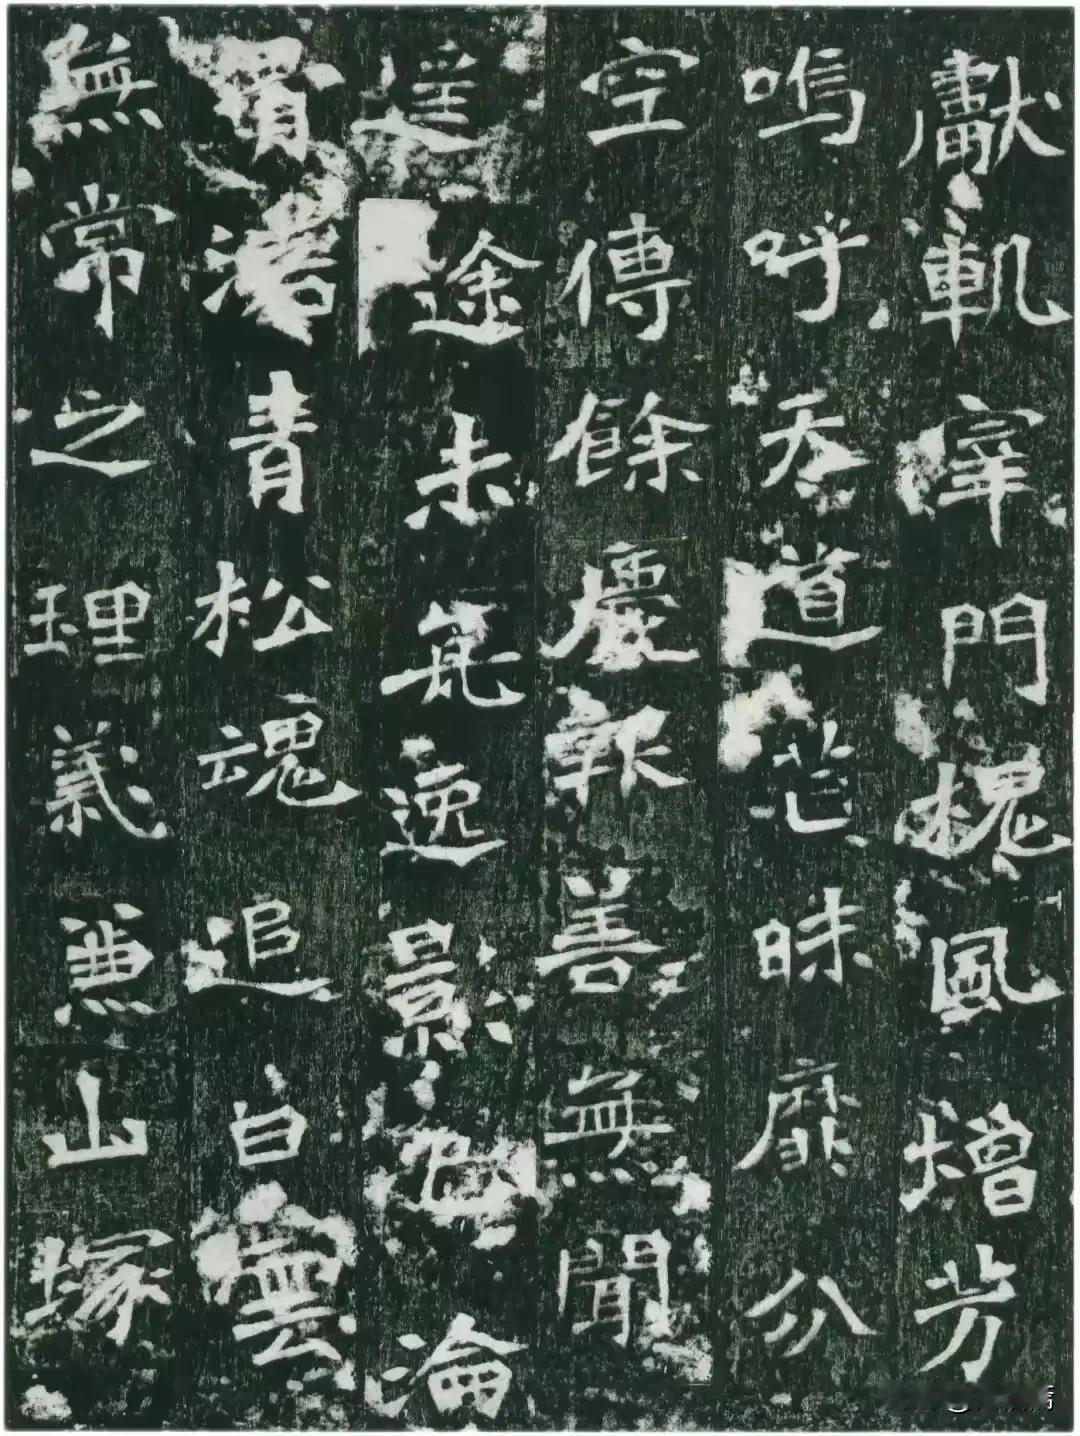 獻軌宰門槐風增芳
嗚呼天道茫昧靡分
空傳餘慶報善無聞
途未逸景已淪
青松魂追白雲
無常之理義兼山塚